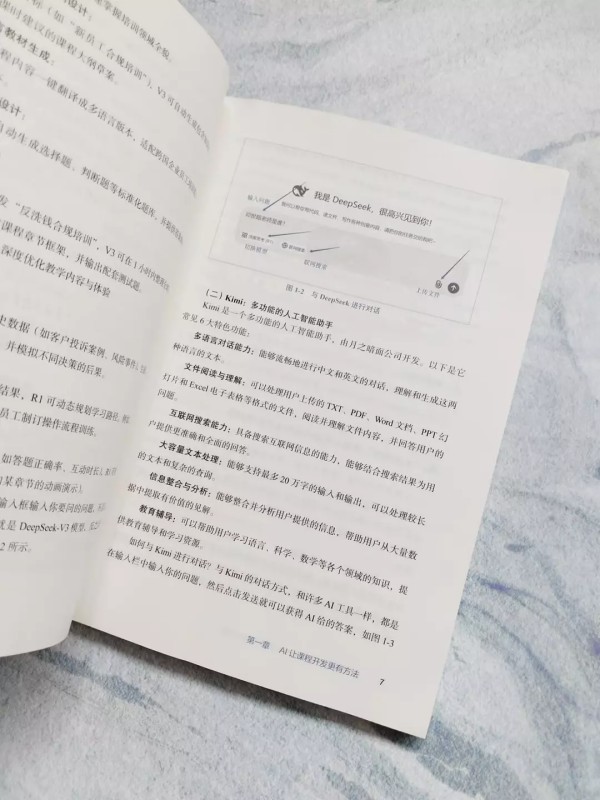 掌握培训领域全貌。
设计：
称（如“新员工合规培训”），V3可自动生成
课时建议的课程大纲草案。
教材生成：
程内容一键翻译成多语言版本，适配跨国企业员工
设计：
自动生成选择题、判断题等标准化题库，并
发“反洗钱合规培训”，V3可在1小时内
课程章节框架，并输出配套测试题。
深度优化教学内容与体验
史数据（如客户投诉案例、风险事件），
，并模拟不同决策的后果。
结果，R1可动态规划学习路径，
员工制订操作流程训练。
如答题正确率、互动时长），R1
某章节的动画演示）
输入框输入你要问的问题，
就是DeepSeek-V3模型，
2所示。
我是 DeepSeek，很高兴见到你！
输入问题
切换模型
联网搜索
上传文件
图 1-2 与 DeepSeek 进行对话
（二）Kimi：多功能的人工智能助手
Kimi 是一个多功能的人工智能助手，由月之暗面公司开发。以下是它
常见 6 大特色功能：
多语言对话能力：能够流畅地进行中文和英文的对话，理解和生成这两
种语言的文本。
文件阅读与理解：可以处理用户上传的 TXT、PDF、Word 文档、PPT 幻
灯片和 Excel 电子表格等格式的文件，阅读并理解文件内容，并回答用户的
问题。
互联网搜索能力：具备搜索互联网信息的能力，能够结合搜索结果为用
户提供更准确和全面的回答。
大容量文本处理：能够支持最多 20 万字的输入和输出，可以处理较长
的文本和复杂的查询。
信息整合与分析：能够整合并分析用户提供的信息，帮助用户从大量数
据中提取有价值的见解。
教育辅导：可以帮助用户学习语言、科学、数学等各个领域的知识，提
供教育辅导和学习资源。
如何与 Kimi 进行对话？与 Kimi 的对话方式，和许多 AI 工具一样，都是
在输入栏中输入你的问题，然后点击发送就可以获得 AI 给的答案，如图 1-3
第一章 AI 让课程开发更有方法
7